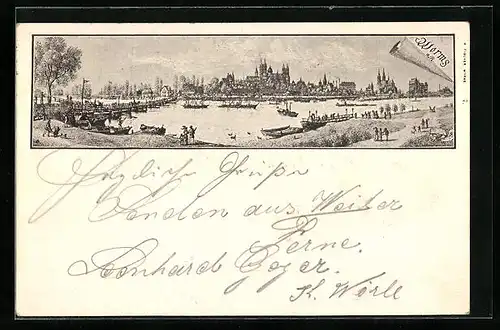 Worms
Herzliche Grüße
Senden aus Weiter
Ferne.
Leonhard Geyer.
K. Wörle